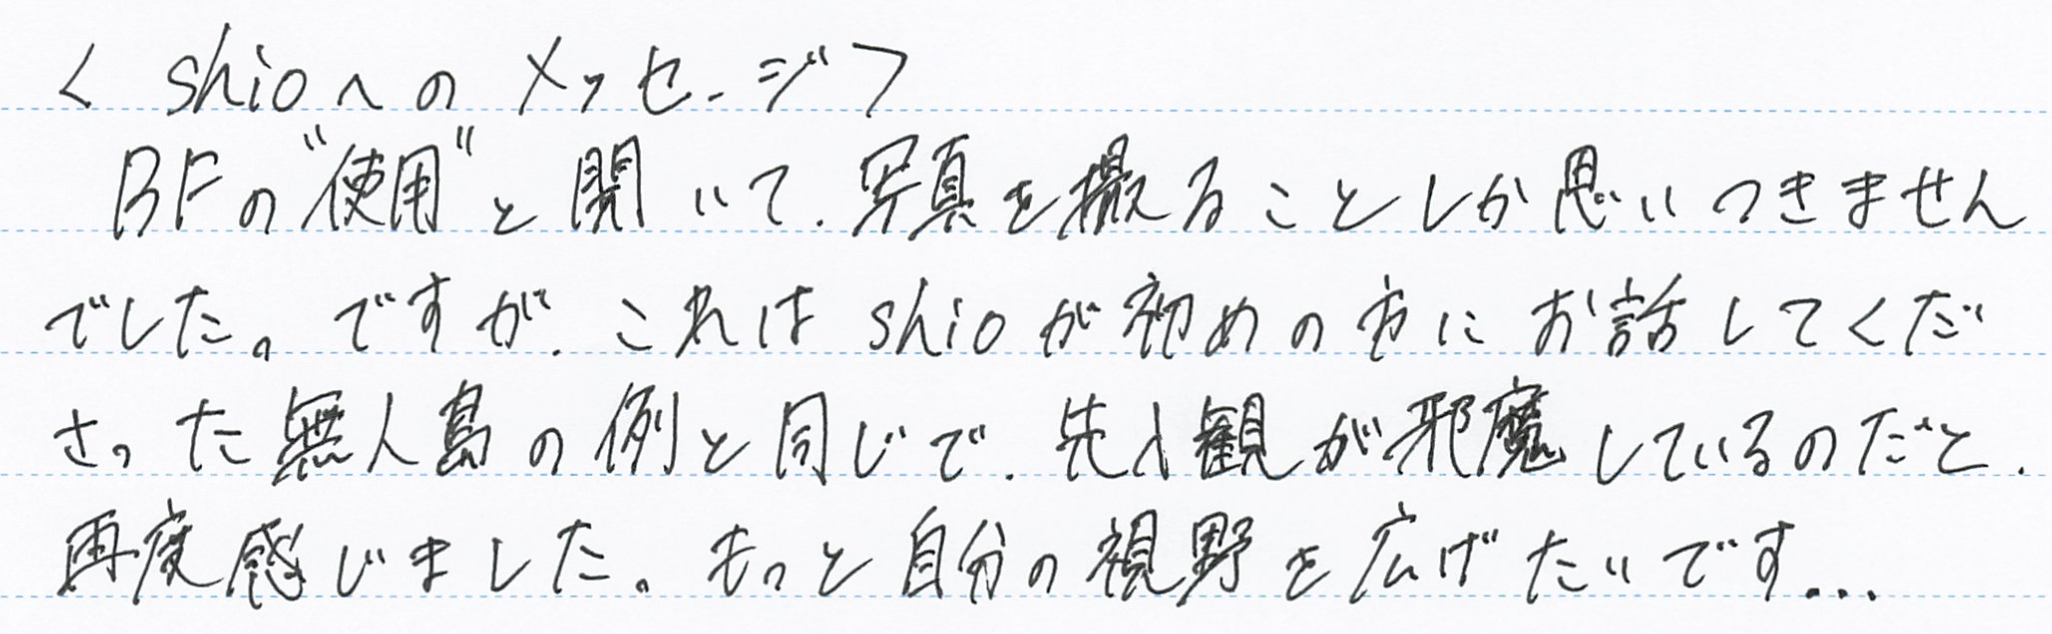 < shioへのメッセージ>
BFの"使用"と聞いて、写真を撮ることしか思いつきません
でした。ですが、これはshioが初めの方にお話してくだ
さった無人島の例と同じで、先入観が邪魔しているのだと、
再度感じました。もっと自分の視野を広げたいです...